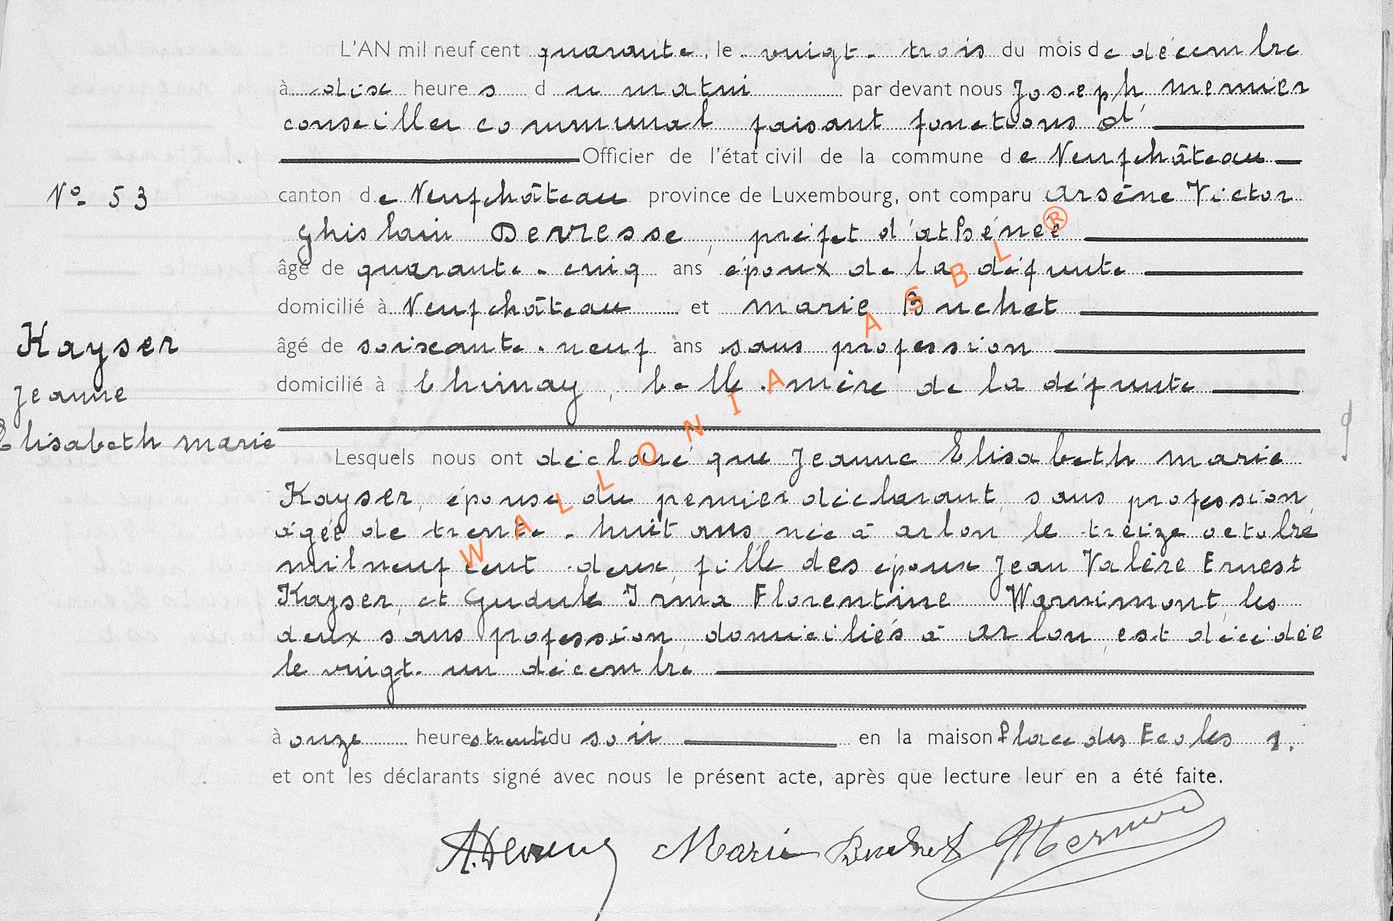 L'AN mil neuf cent quarante, le vingt-trois du mois de décembre
à dix heures du matin par devant nous Joseph Mernier
conseiller communal faisant fonctions d'
Officier de l'état civil de la commune de Neufchâteau
N° 53
canton de Neufchâteau province de Luxembourg, ont comparu Arsène Victor
Ghislain Devresse, préfet d'athénée
âgé de quarante-cinq ans époux de la défunte
domicilié à Neufchâteau et Marie Buchet
Kayser
Jeanne
Elisabeth Marie
âgé de soixante-neuf ans sans profession
domicilié à Chimay, belle-mère de la défunte
Lesquels nous ont déclaré que Jeanne Elisabeth Marie
Kayser, épouse du premier déclarant, sans profession,
âgée de trente-huit ans, née à Arlon le treize octobre
mil neuf cent deux, fille des époux Jean Valère Ernest
Kayser, et Gudule Irma Florentine Warnimont, les
deux sans profession, domiciliés à Arlon, est décédée
le vingt-un décembre
à onze heures trente du soir en la maison Place des Ecoles 1.
et ont les déclarants signé avec nous le présent acte, après que lecture leur en a été faite.
Marie Buchet Mernier
WALLONIA ASBL ®